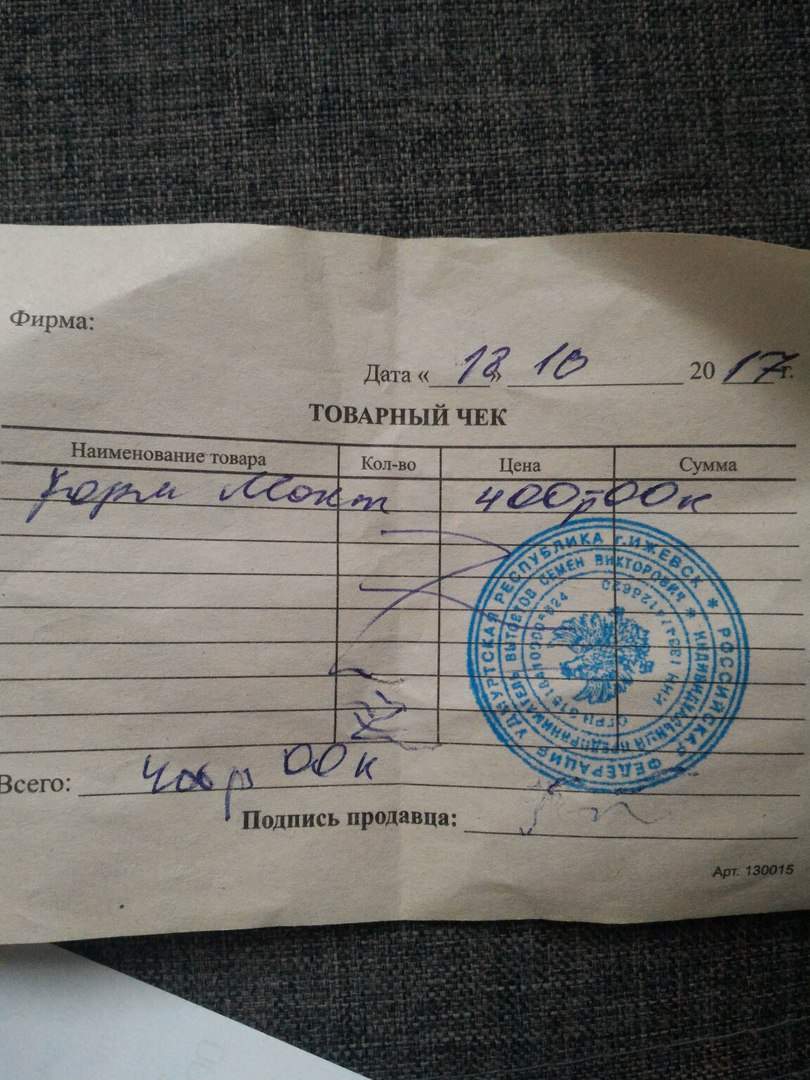 Фирма:
Дата « 18 » 10 20 17 г.
ТОВАРНЫЙ ЧЕК
Наименование товара Кол-во Цена Сумма
400р 00к
Всего: 400р 00к
Подпись продавца:
Арт. 130015
РОССИЙСКАЯ ФЕДЕРАЦИЯ УДМУРТСКАЯ РЕСПУБЛИКА г.ИЖЕВСК *
ИНДИВИДУАЛЬНЫЙ ПРЕДПРИНИМАТЕЛЬ СЕМЕН ВИКТОРОВИЧ *
ОГРН
ИНН